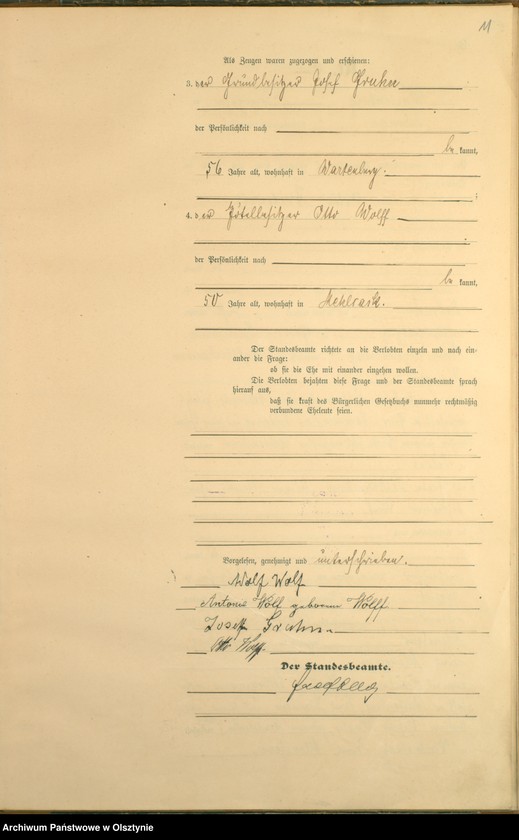 11
Als Zeugen waren zugezogen und erschienen:
3. der Grundbesitzer Josef Gruhn
der Persönlichkeit nach
be kannt,
56 Jahre alt, wohnhaft in Wartenburg.
;
4. der Hotelbesitzer Otto Wolff
der Persönlichkeit nach
be kannt,
50 Jahre alt, wohnhaft in Mehlsack.
Der Standesbeamte richtete an die Verlobten einzeln und nach ein-
ander die Frage:
ob sie die Ehe mit einander eingehen wollen.
Die Verlobten bejahten diese Frage und der Standesbeamte sprach
hierauf aus,
daß sie kraft des Bürgerlichen Gesetzbuchs nunmehr rechtmäßig
verbundene Eheleute seien.
Vorgelesen, genehmigt und unterschrieben.
Adolf Wolf
Antonie Wolf geborene Wolff
Josef Gruhn
Otto Wolff
Der Standesbeamte.
Archiwum Państwowe w Olsztynie